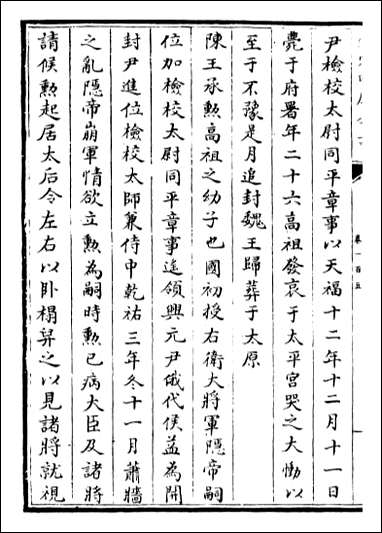 尹檢校太尉同平章事以天福十二年十二月十一日
薨于府署年二十六高祖發哀于太平宮哭之大慟以
至于不豫是月追封魏王歸葬于太原
陳王承勲高祖之幼子也國初授右衛大將軍隠帝嗣
位加檢校太尉同平章事遙領興元尹俄代侯益為開
封尹進位檢校太師兼侍中乾祐三年冬十一月蕭牆
之亂隠帝崩軍情欲立勲為嗣時勲已病大臣及諸將
請候勲起居太后令左右以卧榻舁之以見諸將就視
卷一百五